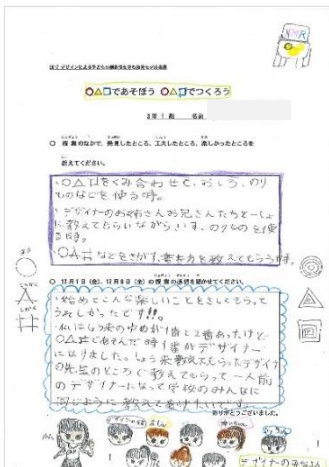 ○△□であそぼう ○△□でつくろう
3年1組 名前
○ 授業のなかで、発見したところ、工夫したところ、楽しかったところを
教えてください。
・○△□をくみ合わせて、おしろ、のり
ものなどを使る時。
・デザイナーのお姉さんお兄さんたちといっしょ
に教えてもらいながらいす、のりものを使
る時。
○△□などをさがす、書き方を教えてもらう時。
○ 12月1日(金)、12月8日(金)の授業の感想を聞かせてください。
・始めてこんな楽しいことをさしてもらって
うれしかったです!!!
・私にはしょう来のゆめが
○△□であそんだ時1番がデザイナー
になりました。しょう来教えてもらったデザイナー
の先生のところで教えてもらって一人前
のデザイナーになって学校のみんなに
同じように教えてあげたいです。
ありがとうございました。
まる
さんかく
しかく
デザイナーのみなさん